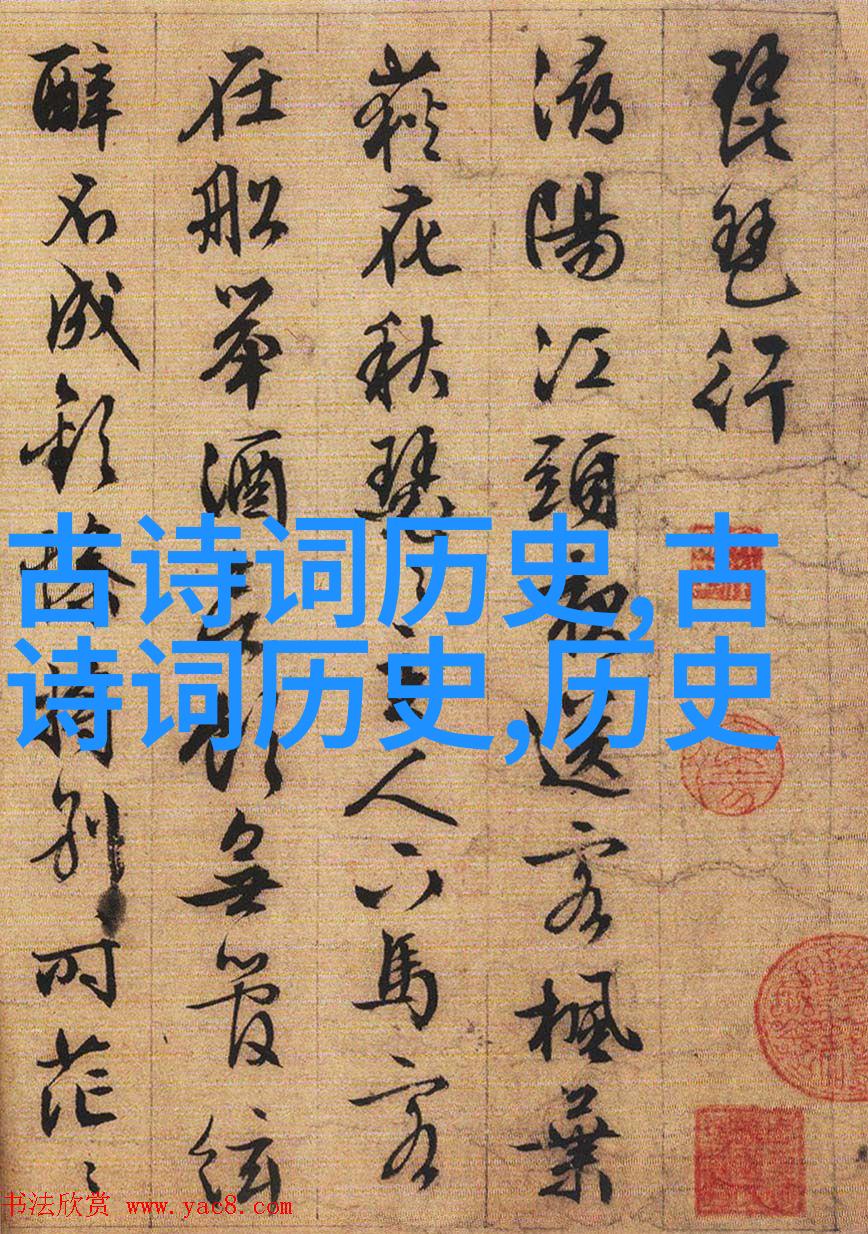 琵琶行
潯陽江頭夜送客楓葉
荻花秋瑟〻主人下馬客
在船舉酒欲飲無管絃
醉不成歡慘將別時茫〻
古诗词历史,古
诗词历史,历史
书法欣赏 www.yac8.com